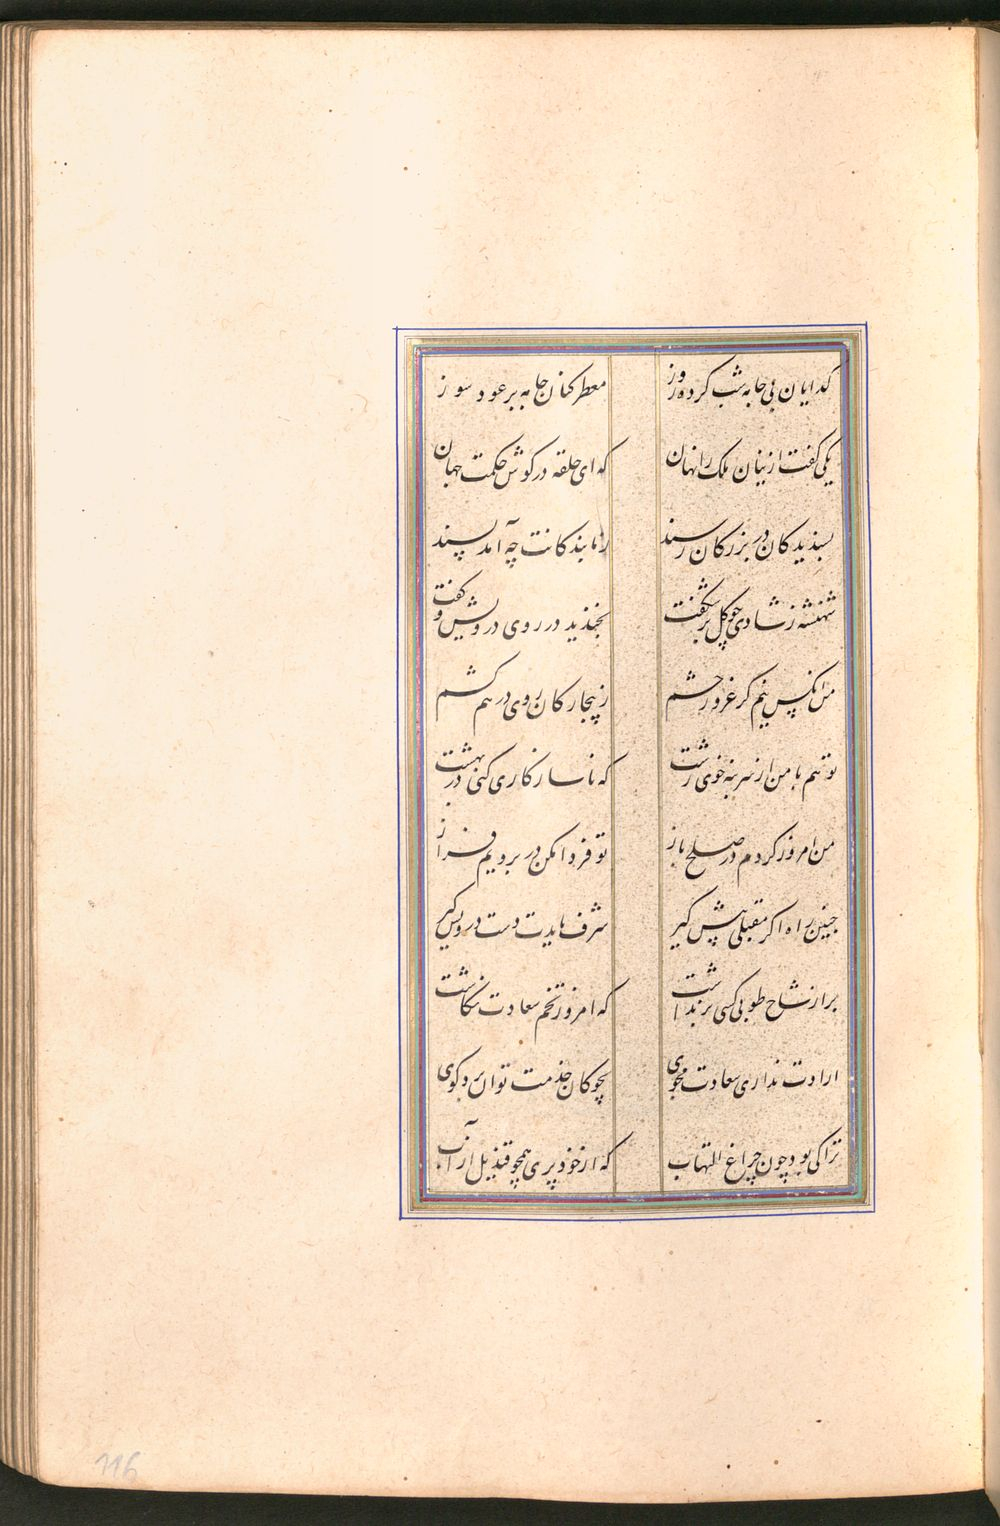 کدایان بی جامه شب کرده روز
معطر کنان جامه بر عود سوز
یکی گفت ازینان ملک را نهان
که ای حلقه در کوش حکمت جهان
پسندیدکان در بزرکان رسند
ز ما بندکانت چه آمد پسند
شهنشه ز شادی چو کل بر شکفت
بخندید در روی درویش و کفت
من انکس نیم کز غرور حشم
ز بیچارکان روی در هم کشم
تو هم با من از سر بنه خوی زشت
که ناسازکاری کنی در بهشت
من امروز کردم در صلح باز
تو فردا مکن در برویم فراز
چنین راه اکر مقبلی پیش کیر
شرف بایدت دست درویش کیر
بر از شاخ طوبی کسی بر نداشت
که امروز تخم سعادت نکاشت
ارادت نداری سعادت مجوی
بچوکان خدمت توان برد کوی
ترا کی بود چون چراغ التهاب
که از خود پری همچو قندیل از آب
116